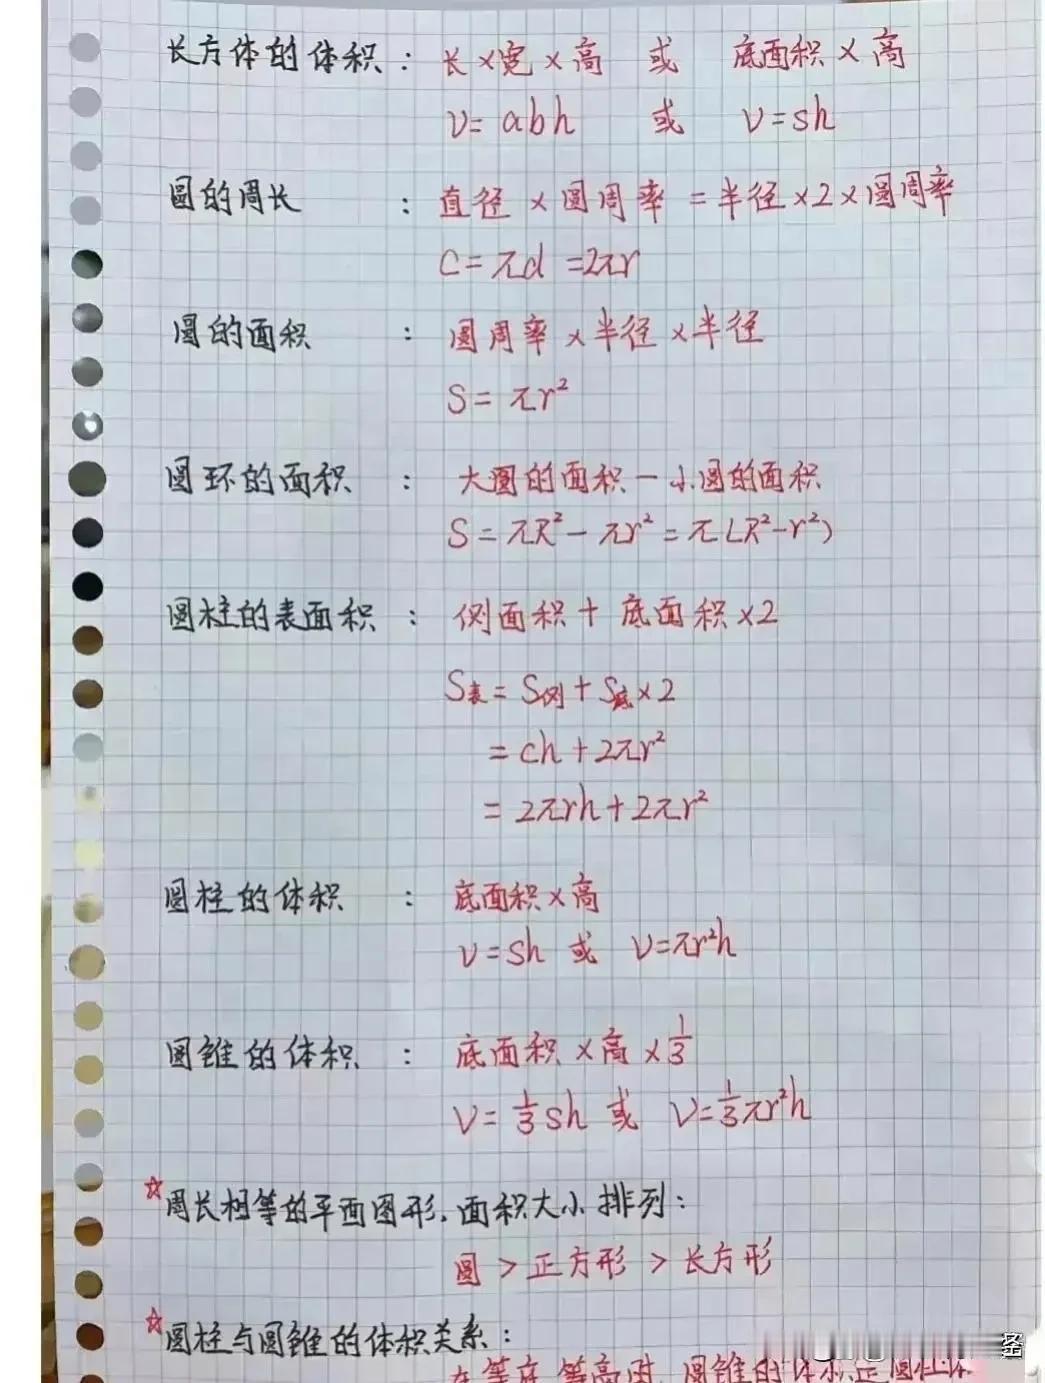 长方体的体积：长×宽×高 或 底面积×高
V=abh 或 V=sh
圆的周长：直径×圆周率=半径×2×圆周率
C=πd=2πr
圆的面积：圆周率×半径×半径
S=πr²
圆环的面积：大圆的面积-小圆的面积
S=πR²-πr²=π(R²-r²)
圆柱的表面积：侧面积+底面积×2
S表=S侧+S底×2
=ch+2πr²
=2πrh+2πr²
圆柱的体积：底面积×高
V=sh 或 V=πr²h
圆锥的体积：底面积×高×1/3
V=1/3sh 或 V=1/3πr²h
☆周长相等的平面图形,面积大小排列：
圆>正方形>长方形
☆圆柱与圆锥的体积关系：
在等底等高时,圆锥的体积是圆柱体